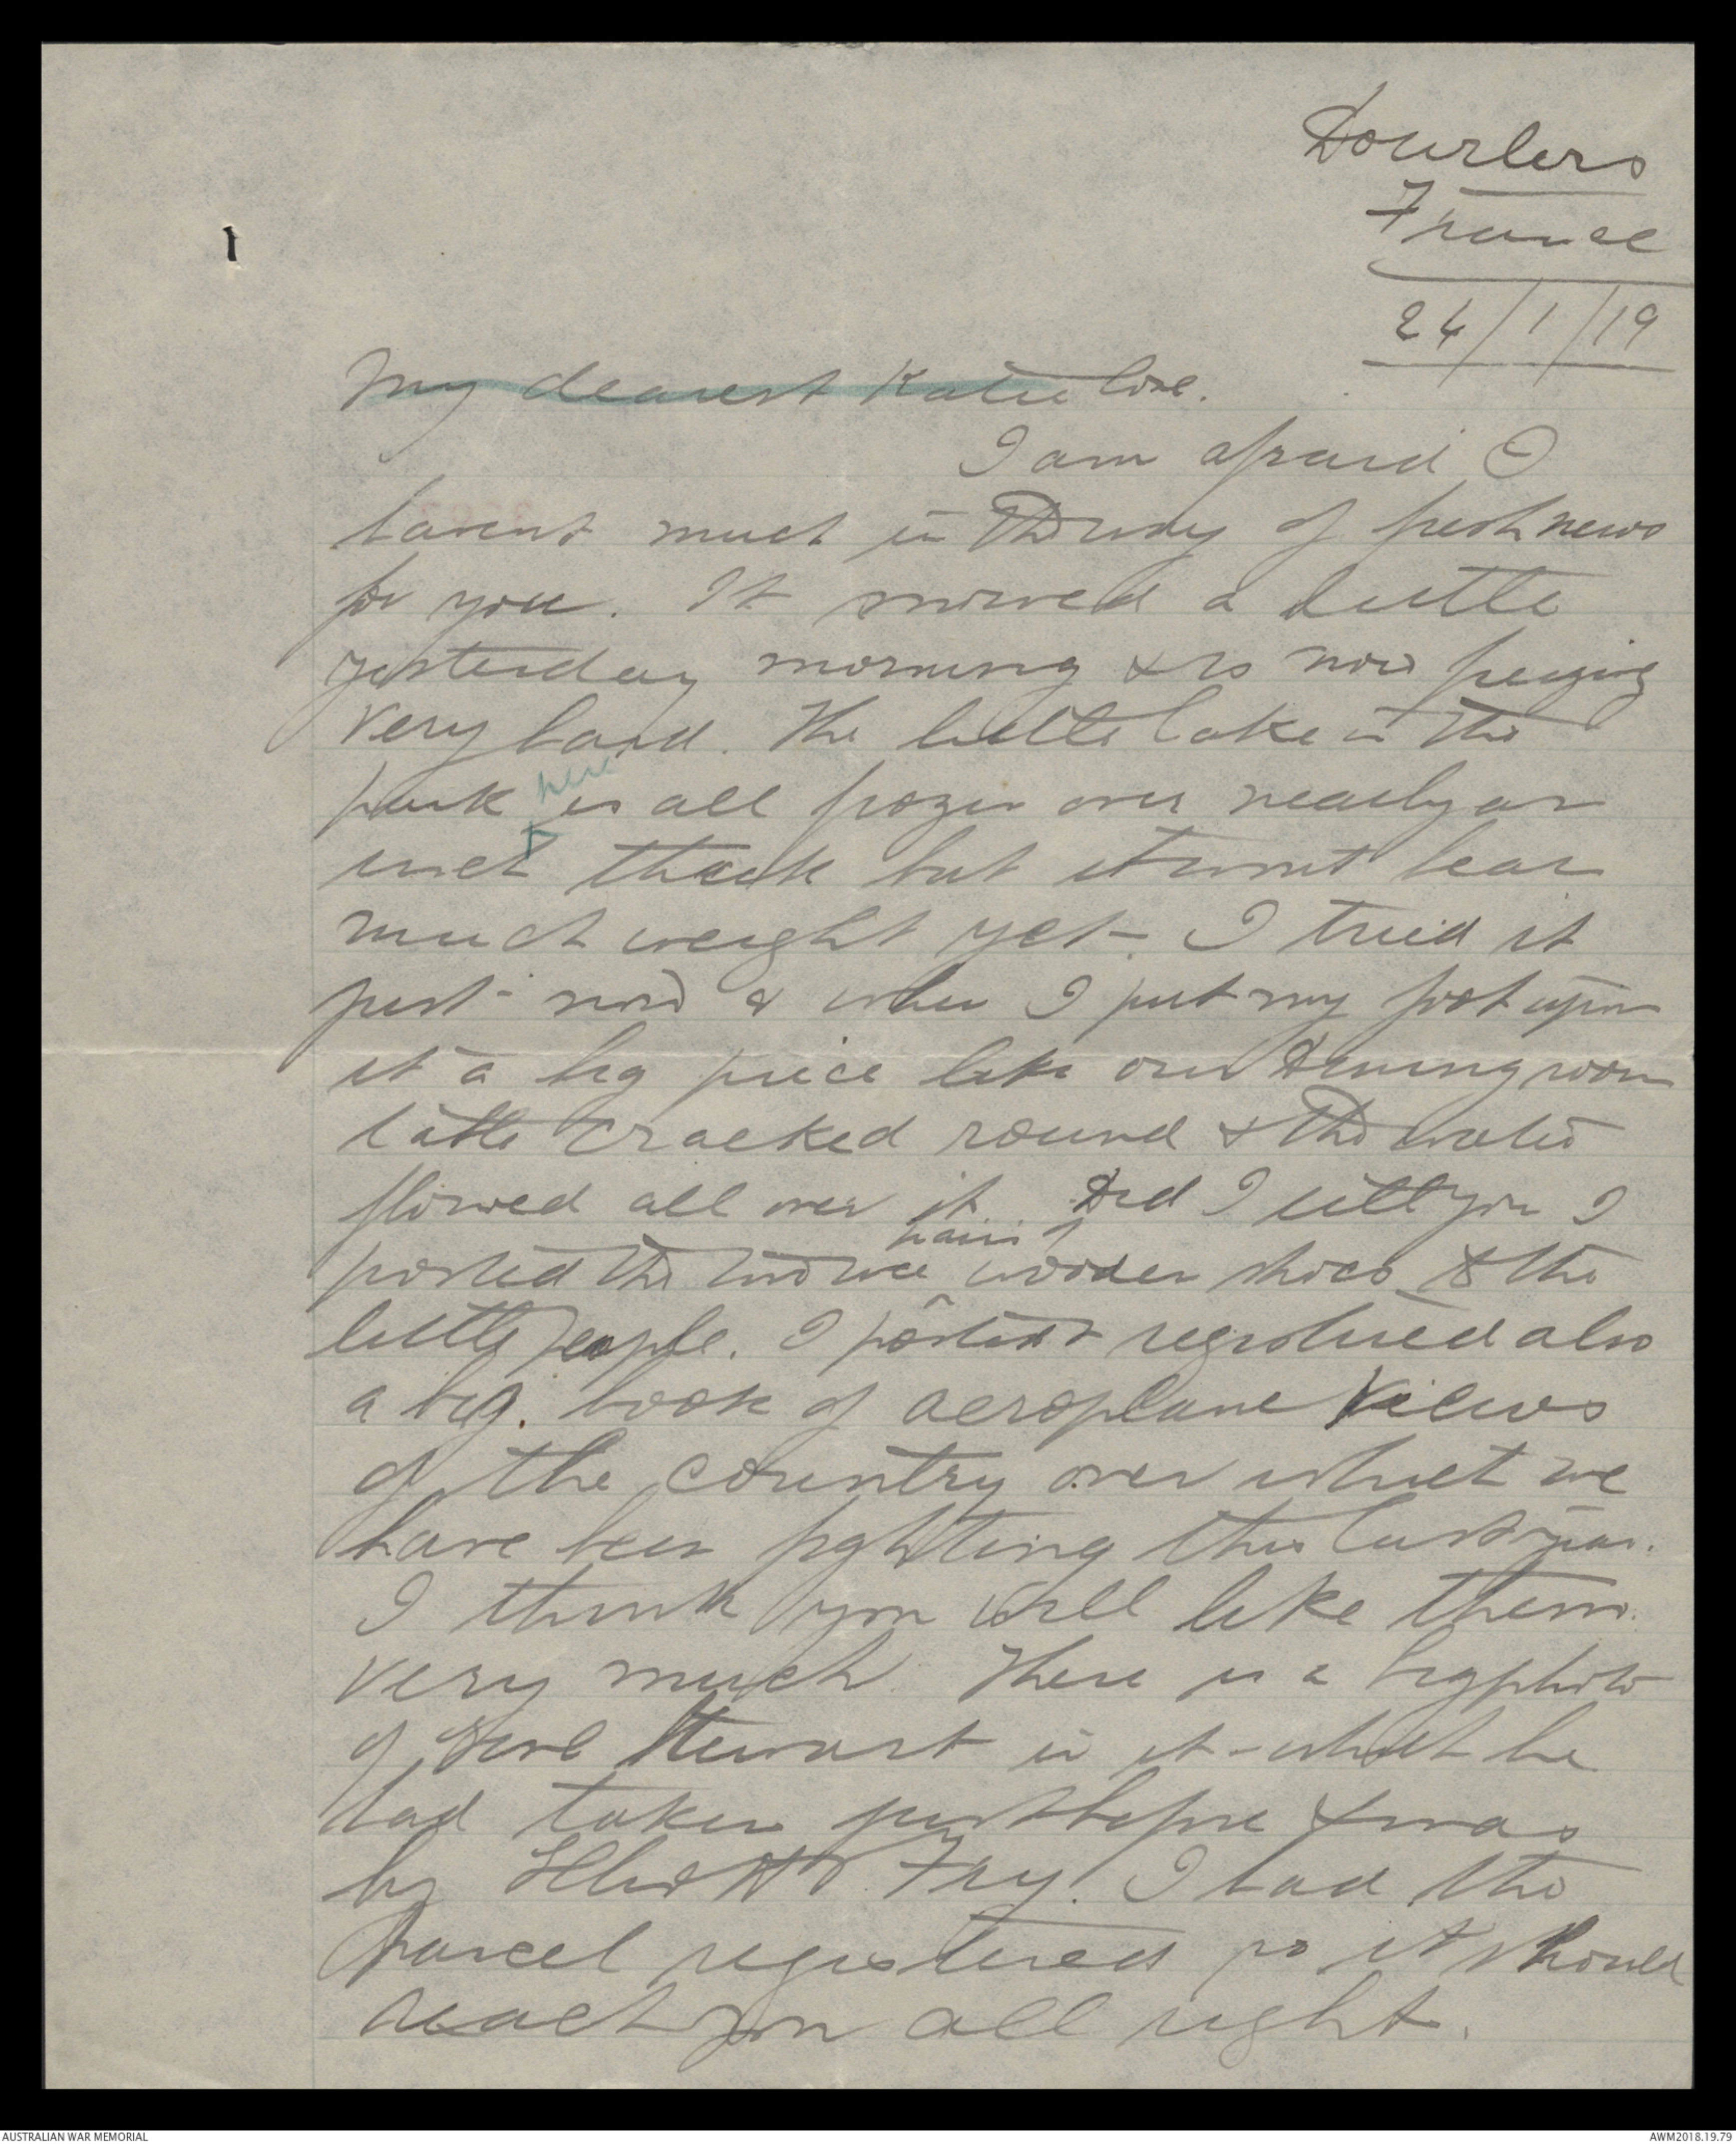 Dourlers
France
24/1/19
My dearest Katie love.
I am afraid I
havent much in the way of fresh news
for you. It snowed a little
yesterday morning & is now freezing
very hard. The little lake in the
park here is all frozen over nearly an
inch thick but it wont bear
much weight yet. I tried it
just now & when I put my foot upon
it a big piece like our dining room
table cracked round & the water
flowed all over it. Did I tell you I
posted the two wee pairs of wooden shoes & the
little people. I posted & registered also
a big book of aeroplane views
of the country over which we
have been fighting this last year.
I think you will like them
very much. There is a big photo
of Genl Stewart in it - which he
had taken just before Xmas
by Elliott & Fry. I had the
parcel registered so it should
reach you all right.
AUSTRALIAN WAR MEMORIAL
AWM2018.19.79